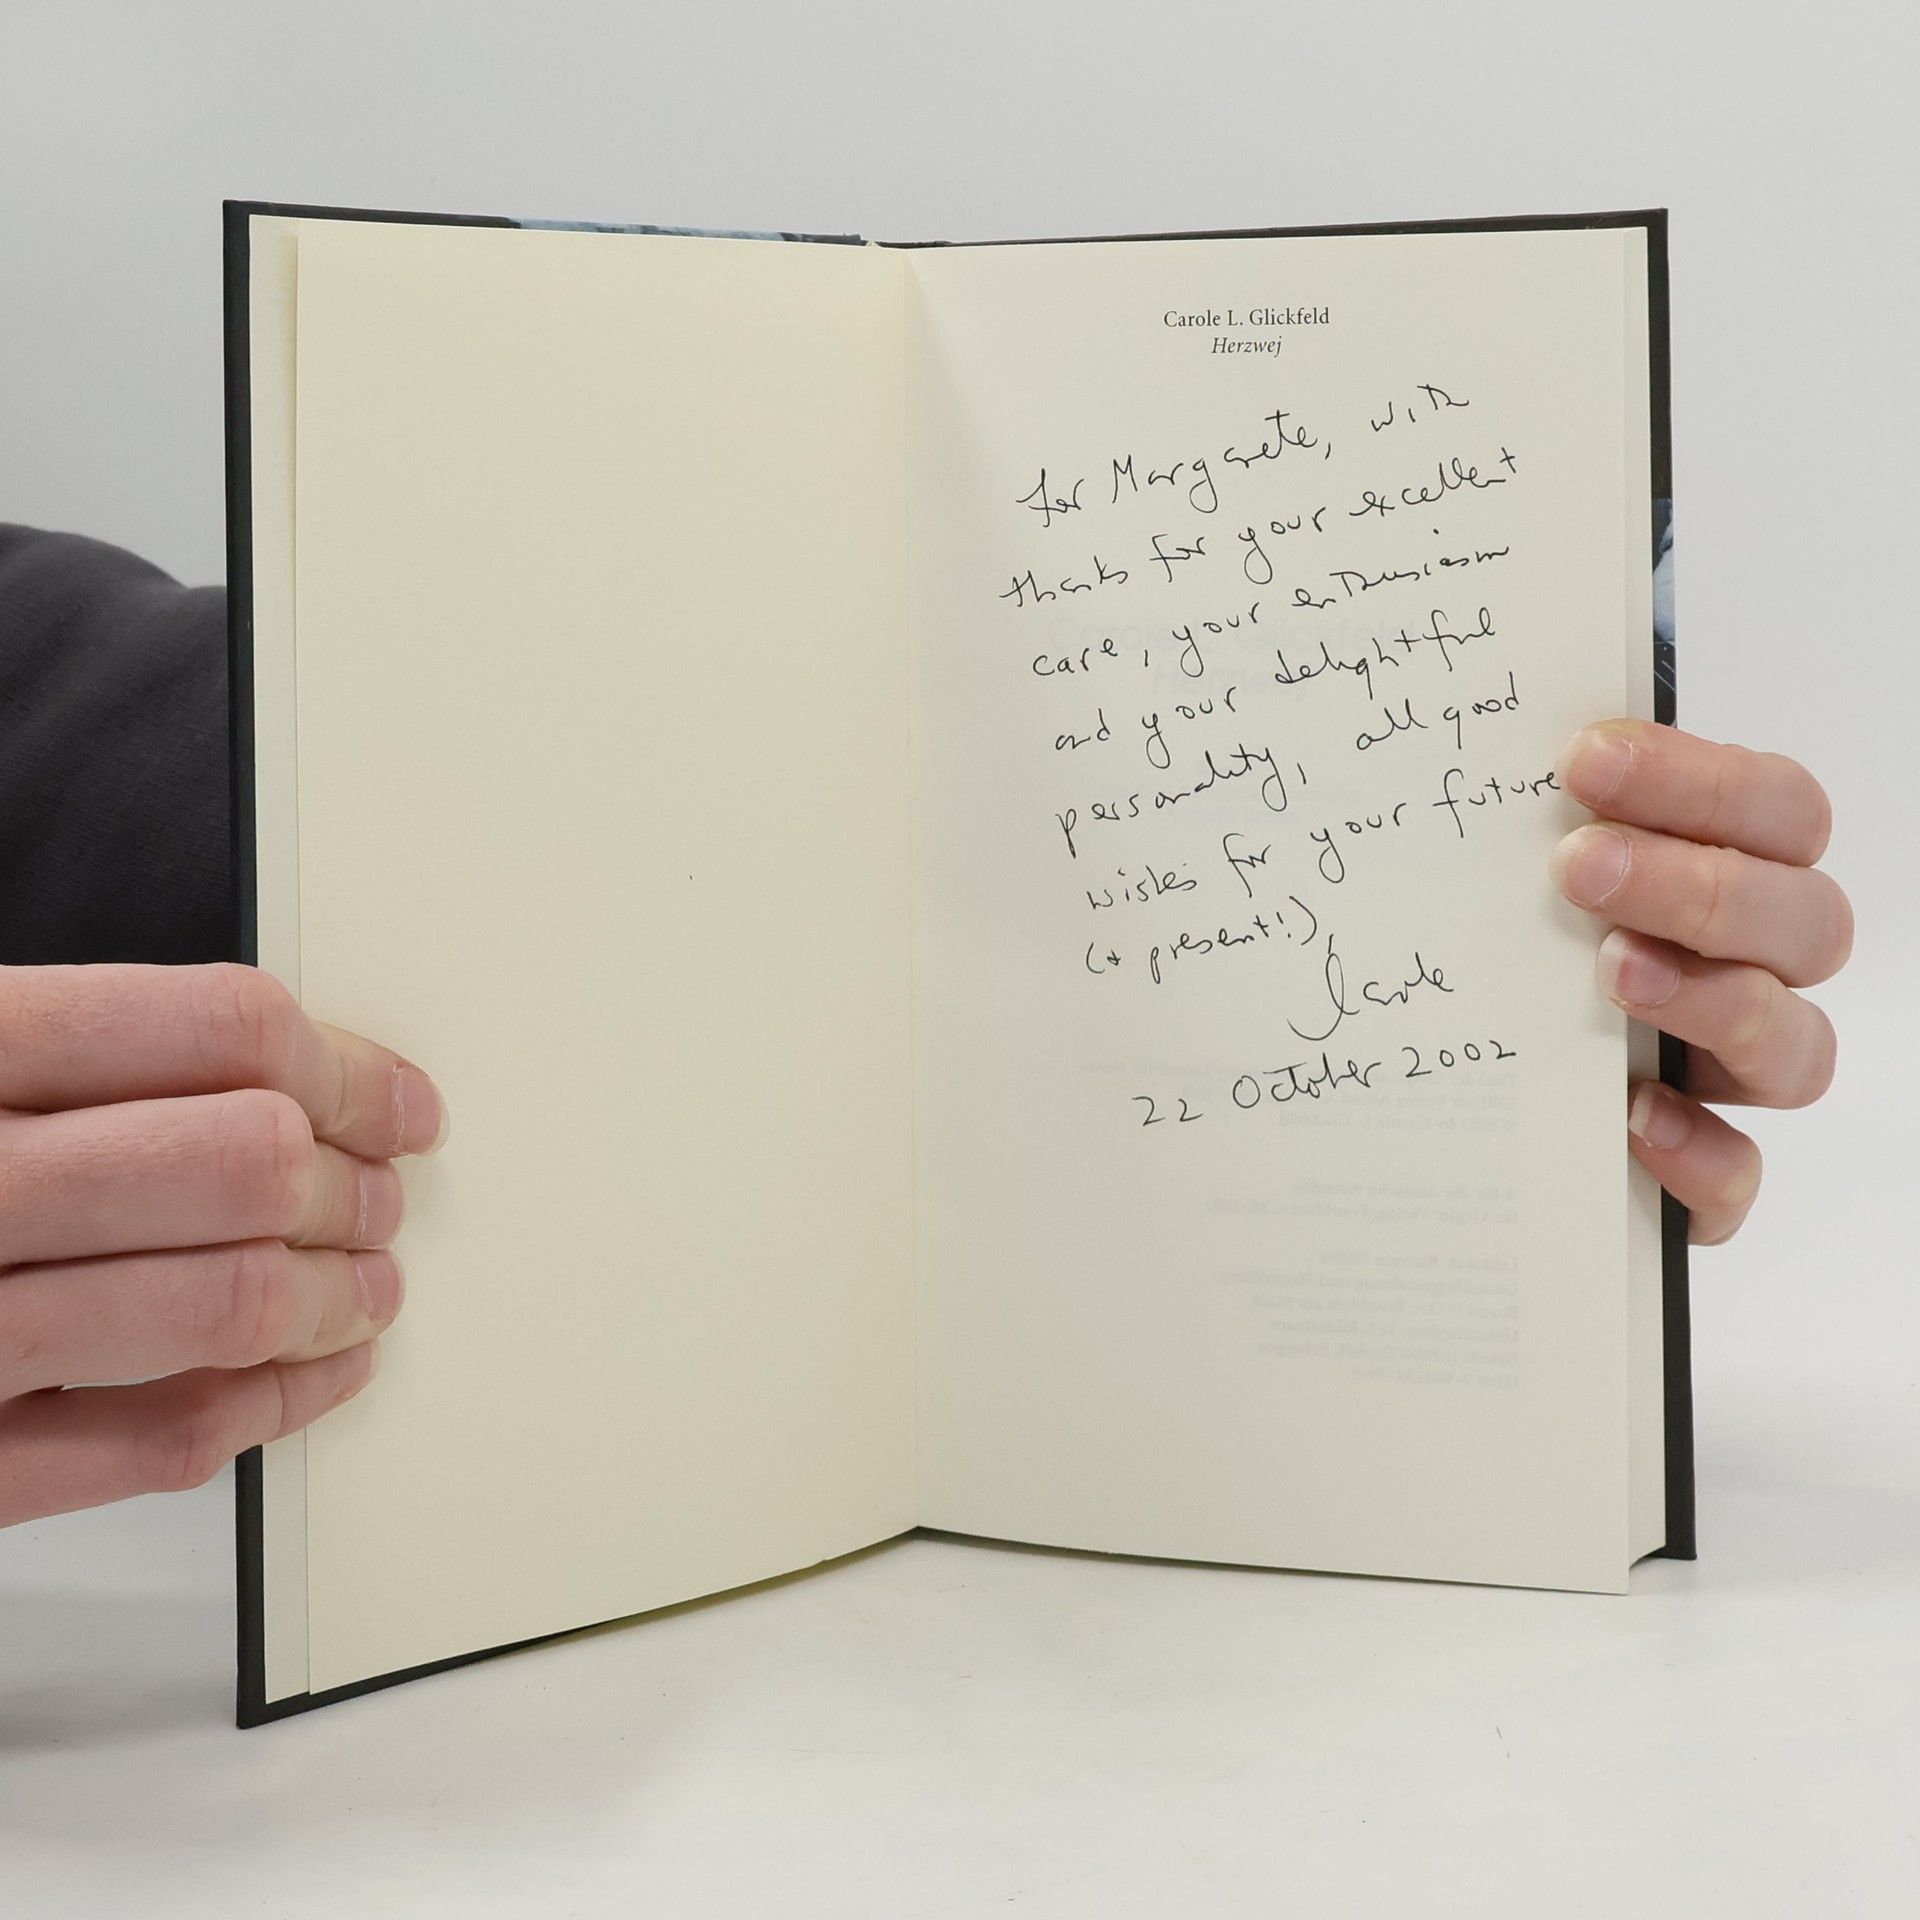 Carole L. Glickfeld
Herzwej
For Margarete, with
thanks for your excellent
care, your enthusiasm
and your delightful
personality, all good
wishes for your future
(+ present!),
Carole
22 October 2002